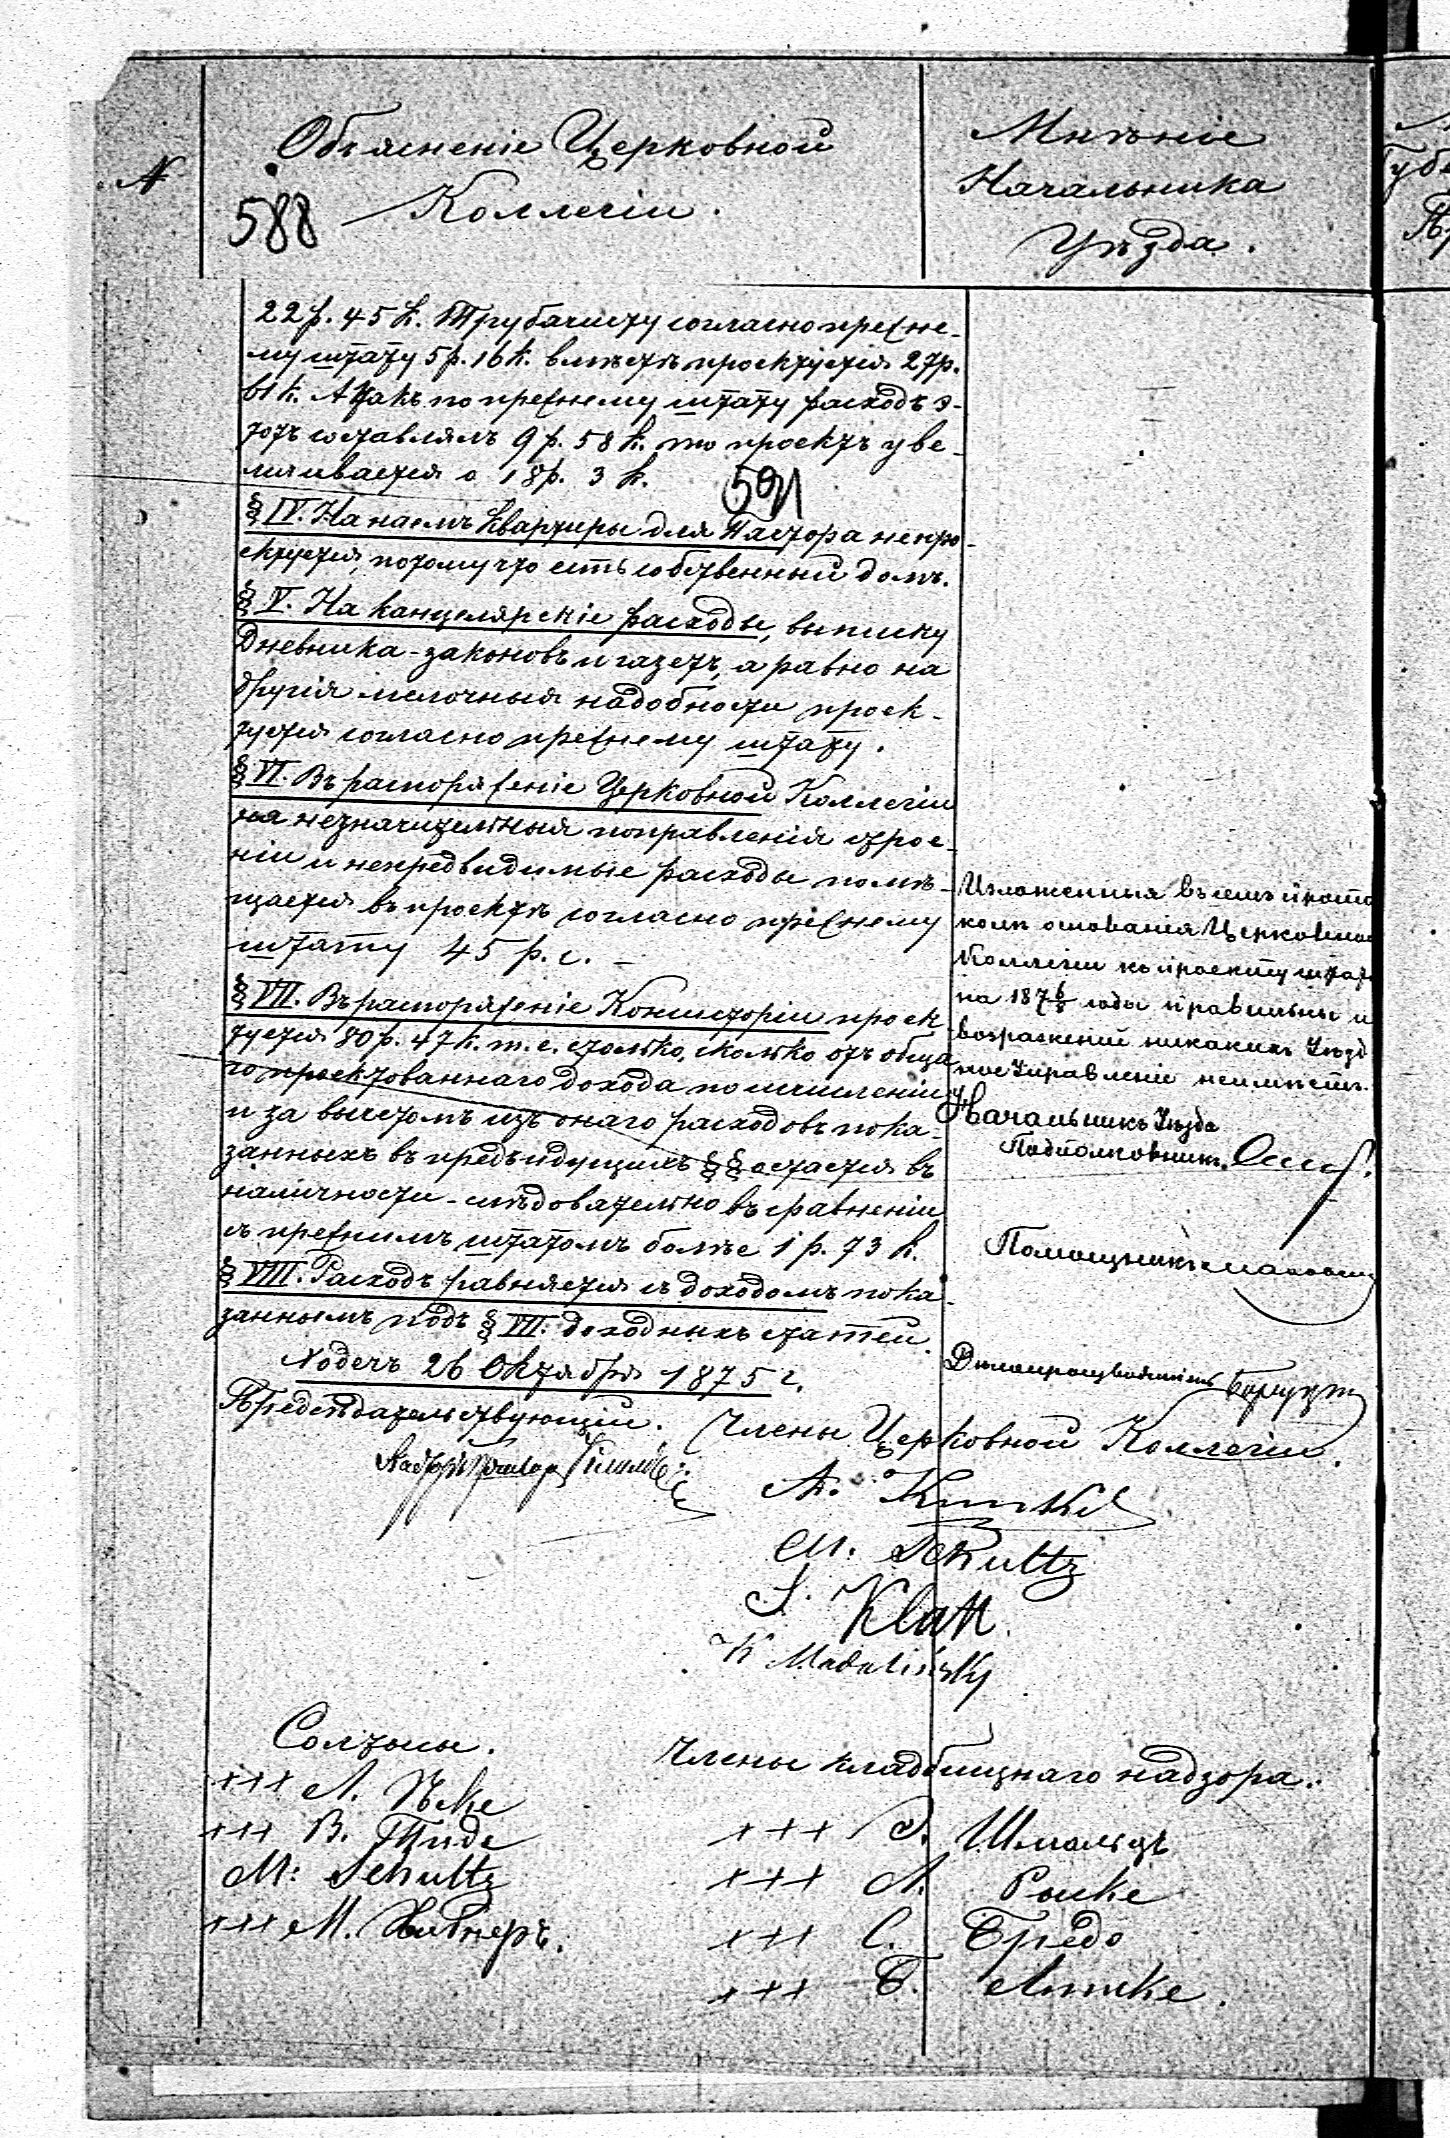 №
Объясненіе Церковной
588
Коллегіи.
Мнѣніе
Начальника
Уѣзда.
22 р. 45 к. Трубачисту согласно прежне-
му штату 5 р. 16 к. вмѣстѣ проектуется 27 р.
61 к. А такъ по прежнему штату расходъ э-
тотъ составлялъ 9 р. 58 к. то проектъ уве-
личивается о 18 р. 3 к.
591
§ IV. На наемъ квартиры для Пастора непро-
ектуется, потому что есть собственный домъ.
§ V. На канцелярскіе расходы, выписку
Дневника-законовъ и газетъ, а равно на
другія мелочныя надобности проек-
туется согласно прежнему штату.
§ VI. Въ распоряженіе Церковной Коллегіи
на незначительныя поправленія строе-
ніи и непредвидимые расходы помѣ-
щается въ проектѣ согласно прежнему
штату 45 р. с. –
§ VII. Въ распоряженіе Консисторіи проек
туется 80 р. 47 к. т. е. столько, сколько отъ обща
го проектованнаго дохода по исчисленіи
и за вычетомъ изъ онаго расходовъ пока-
занныхъ въ предъидущихъ §§ остается въ
наличности - слѣдовательно въ сравненіи
съ прежнимъ штатомъ болѣе 1 р. 73 к.
§ VIII. Расходъ равняется съ доходомъ пока-
заннымъ подъ § VII. доходныхъ статей.
Нодечъ 26 Октября 1875 г.
Предсѣдательствующій.
Пасторъ
Изложенныя въ семъ прото
колѣ основанія Церковной
Коллегіи къ проекту штат
на 187 годы правильны и
возраженій никакихъ Уѣзд
ное Управленіе неимѣетъ.
Начальникъ Уѣзда
Подполковникъ
Помощникъ
Дѣлопроизводитель
Члены Церковной Коллегіи.
A.
M. Schultz
Klatt.
K Madalińsky
Солтысы.
+++ Л.
+++ В. Тиде
M: Schultz
+++ М.
Члены кладбищнаго надзора.
+++ Шмальцъ
+++ А.
+++ С. Бредо
+++ Б.